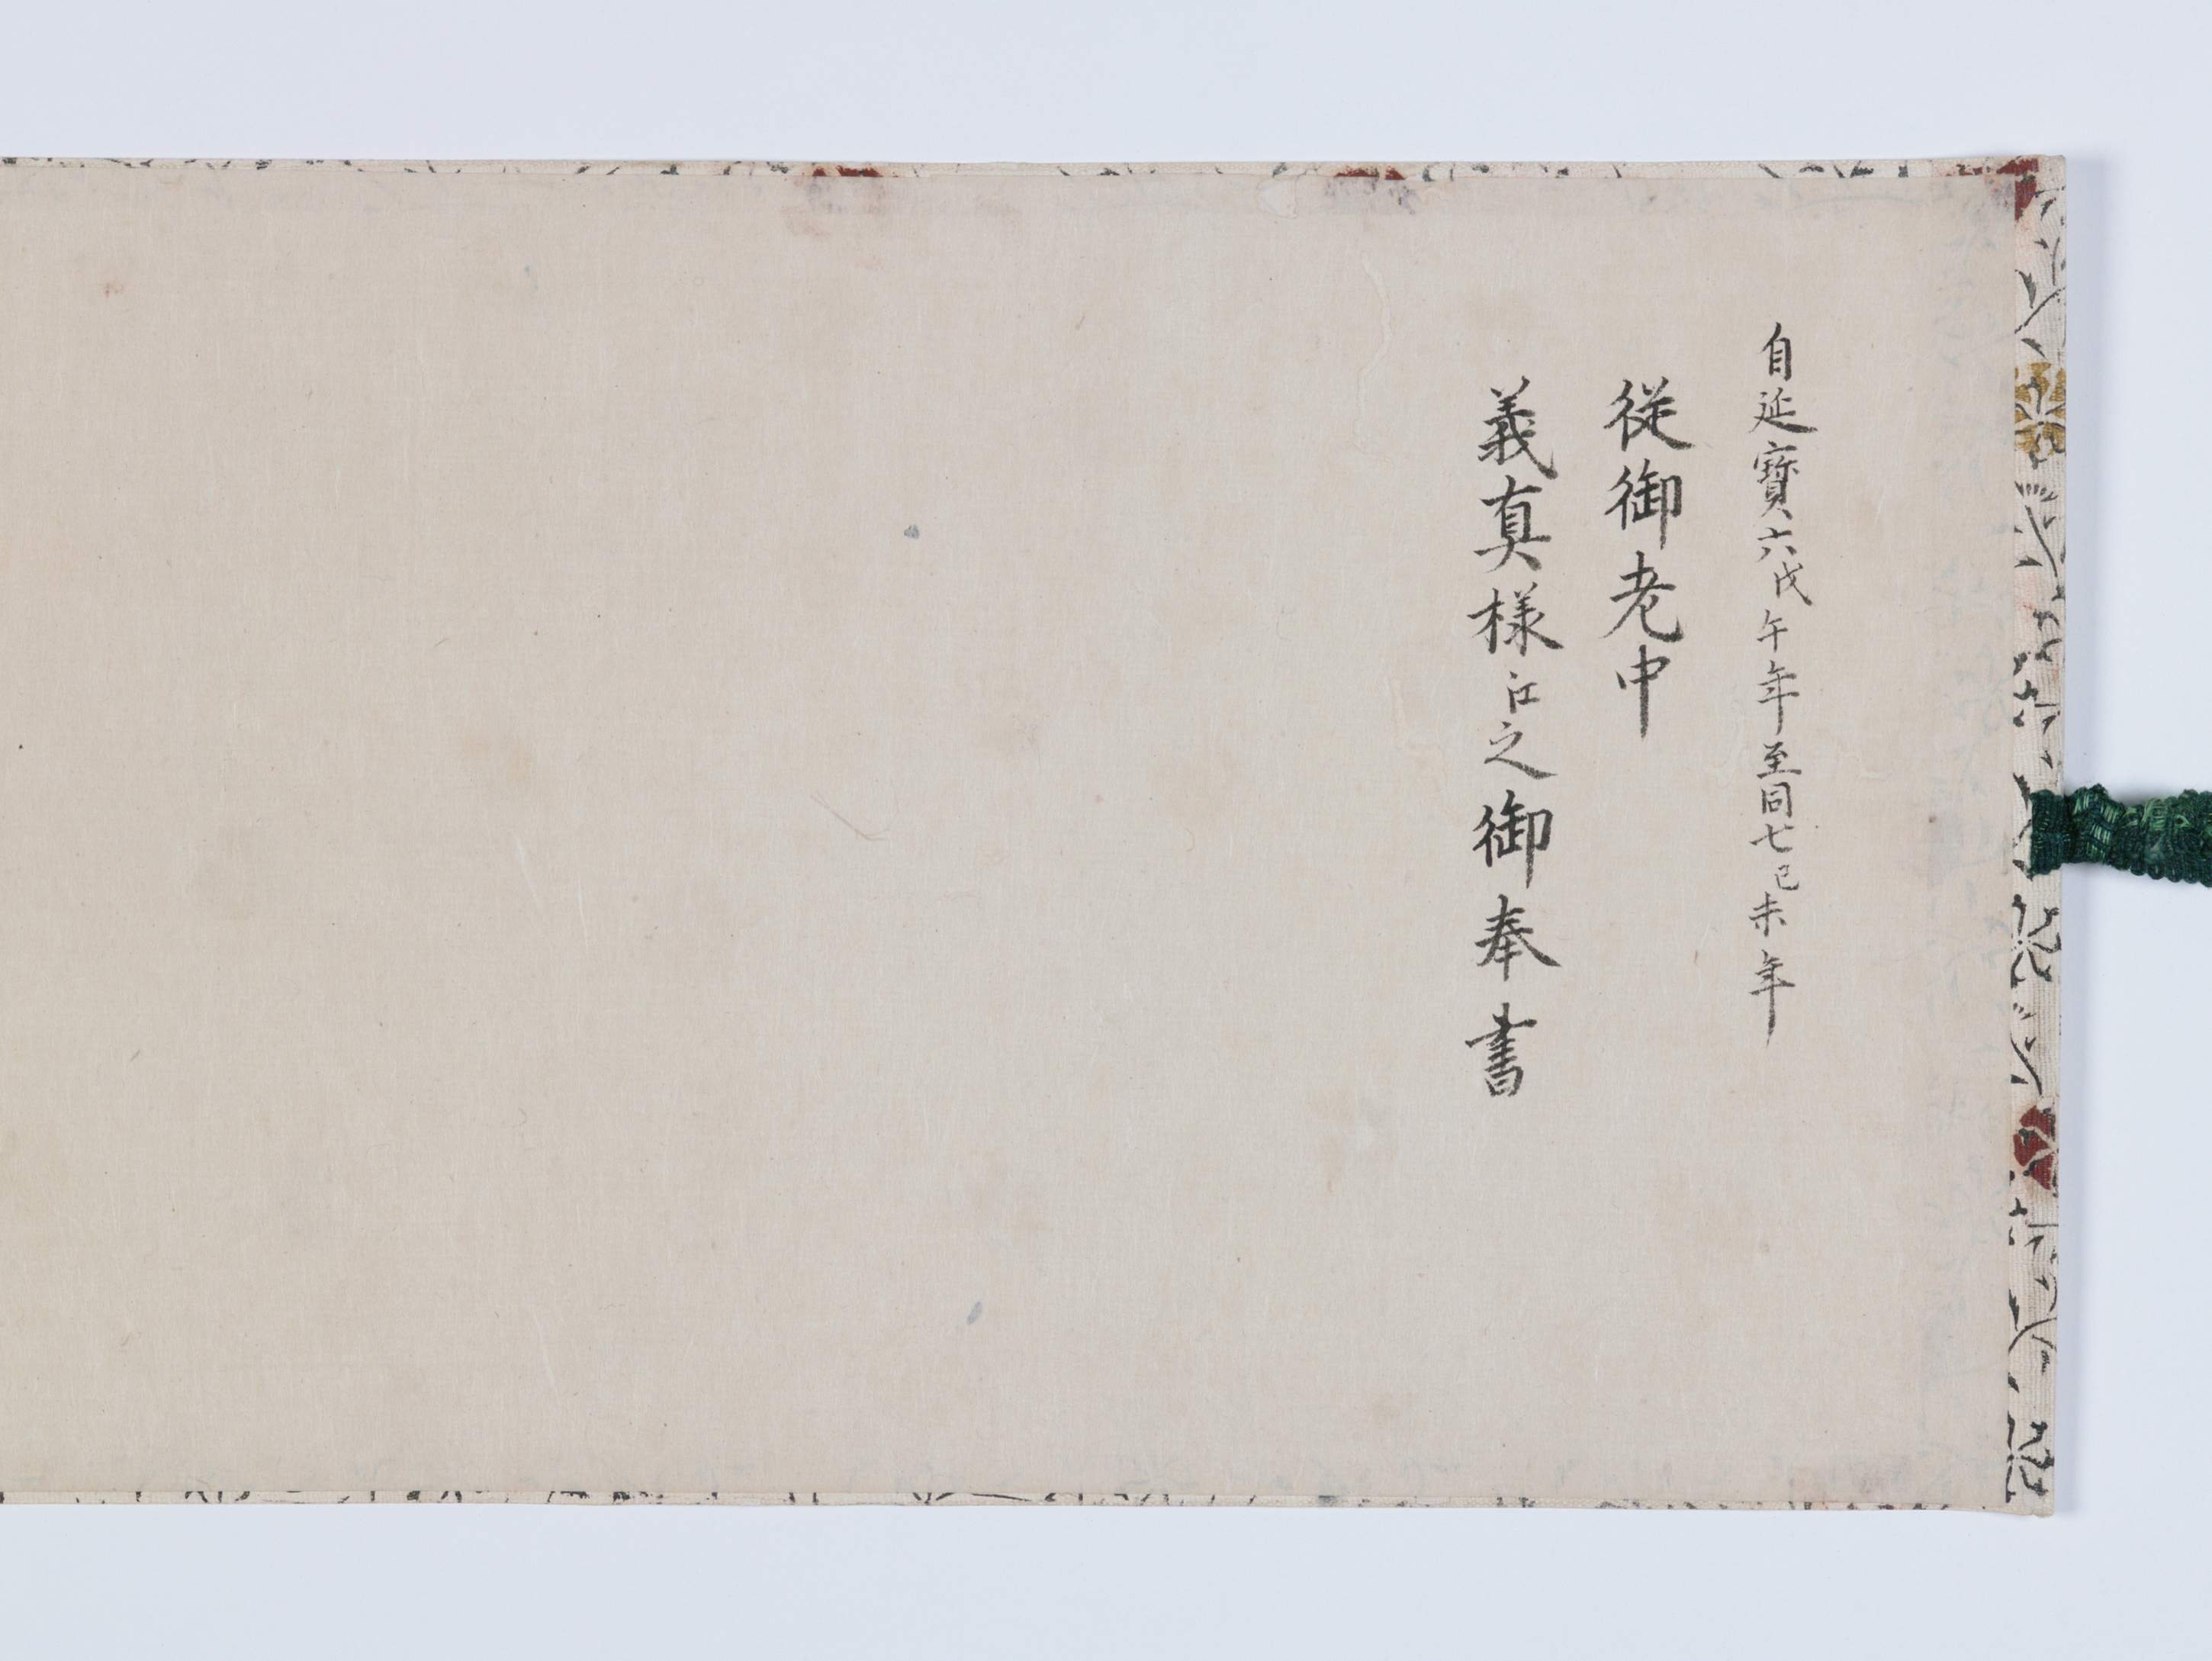 自延寳六戊午年至同七己未年
従御老中
義真様江之御奉書